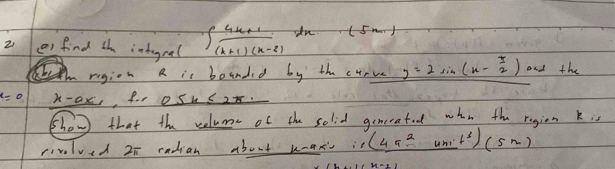 2) a) find the integral ∫ 4x+1 / (x+1)(x-2) dx (5m)
(b) The region R is bounded by the curve y = 2 sin (x - π/2) and the
x=0 x-axis, for 0 ≤ x ≤ 2π.
Show that the volume of the solid generated when the region R is
revolved 2π radian about x-axis is (4π² unit³) (5m)